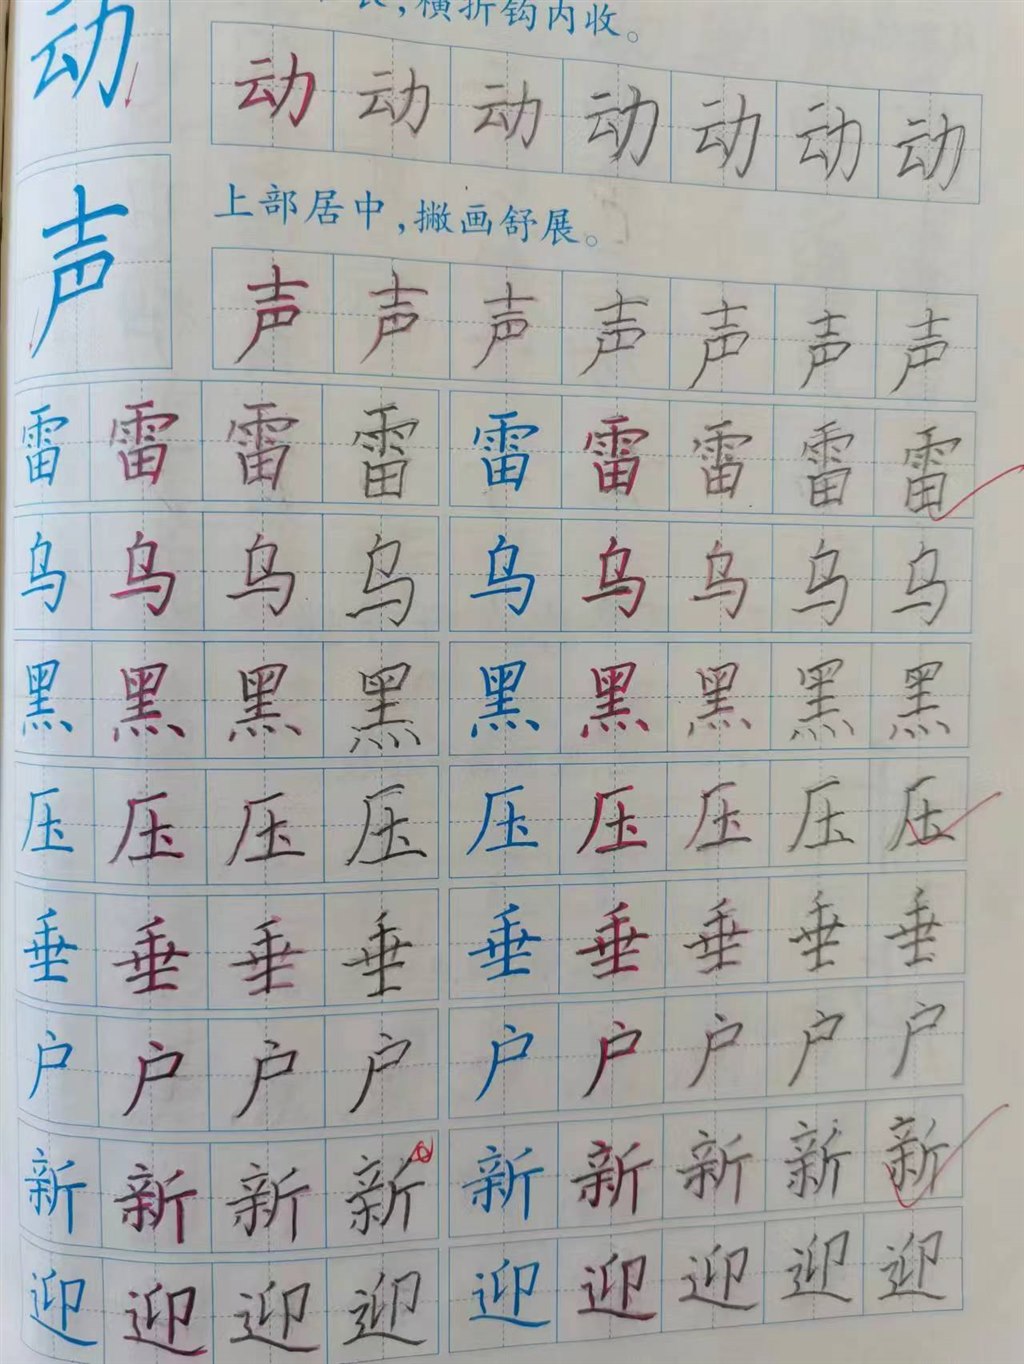 动 横折钩内收。
动 动 动 动 动 动 动
声 上部居中,撇画舒展。
声 声 声 声 声 声 声
雷 雷 雷 雷 雷 雷 雷 雷 雷
乌 乌 乌 乌 乌 乌 乌 乌 乌
黑 黑 黑 黑 黑 黑 黑 黑 黑
压 压 压 压 压 压 压 压 压
垂 垂 垂 垂 垂 垂 垂 垂 垂
户 户 户 户 户 户 户 户 户
新 新 新 新 新 新 新 新 新
迎 迎 迎 迎 迎 迎 迎 迎 迎